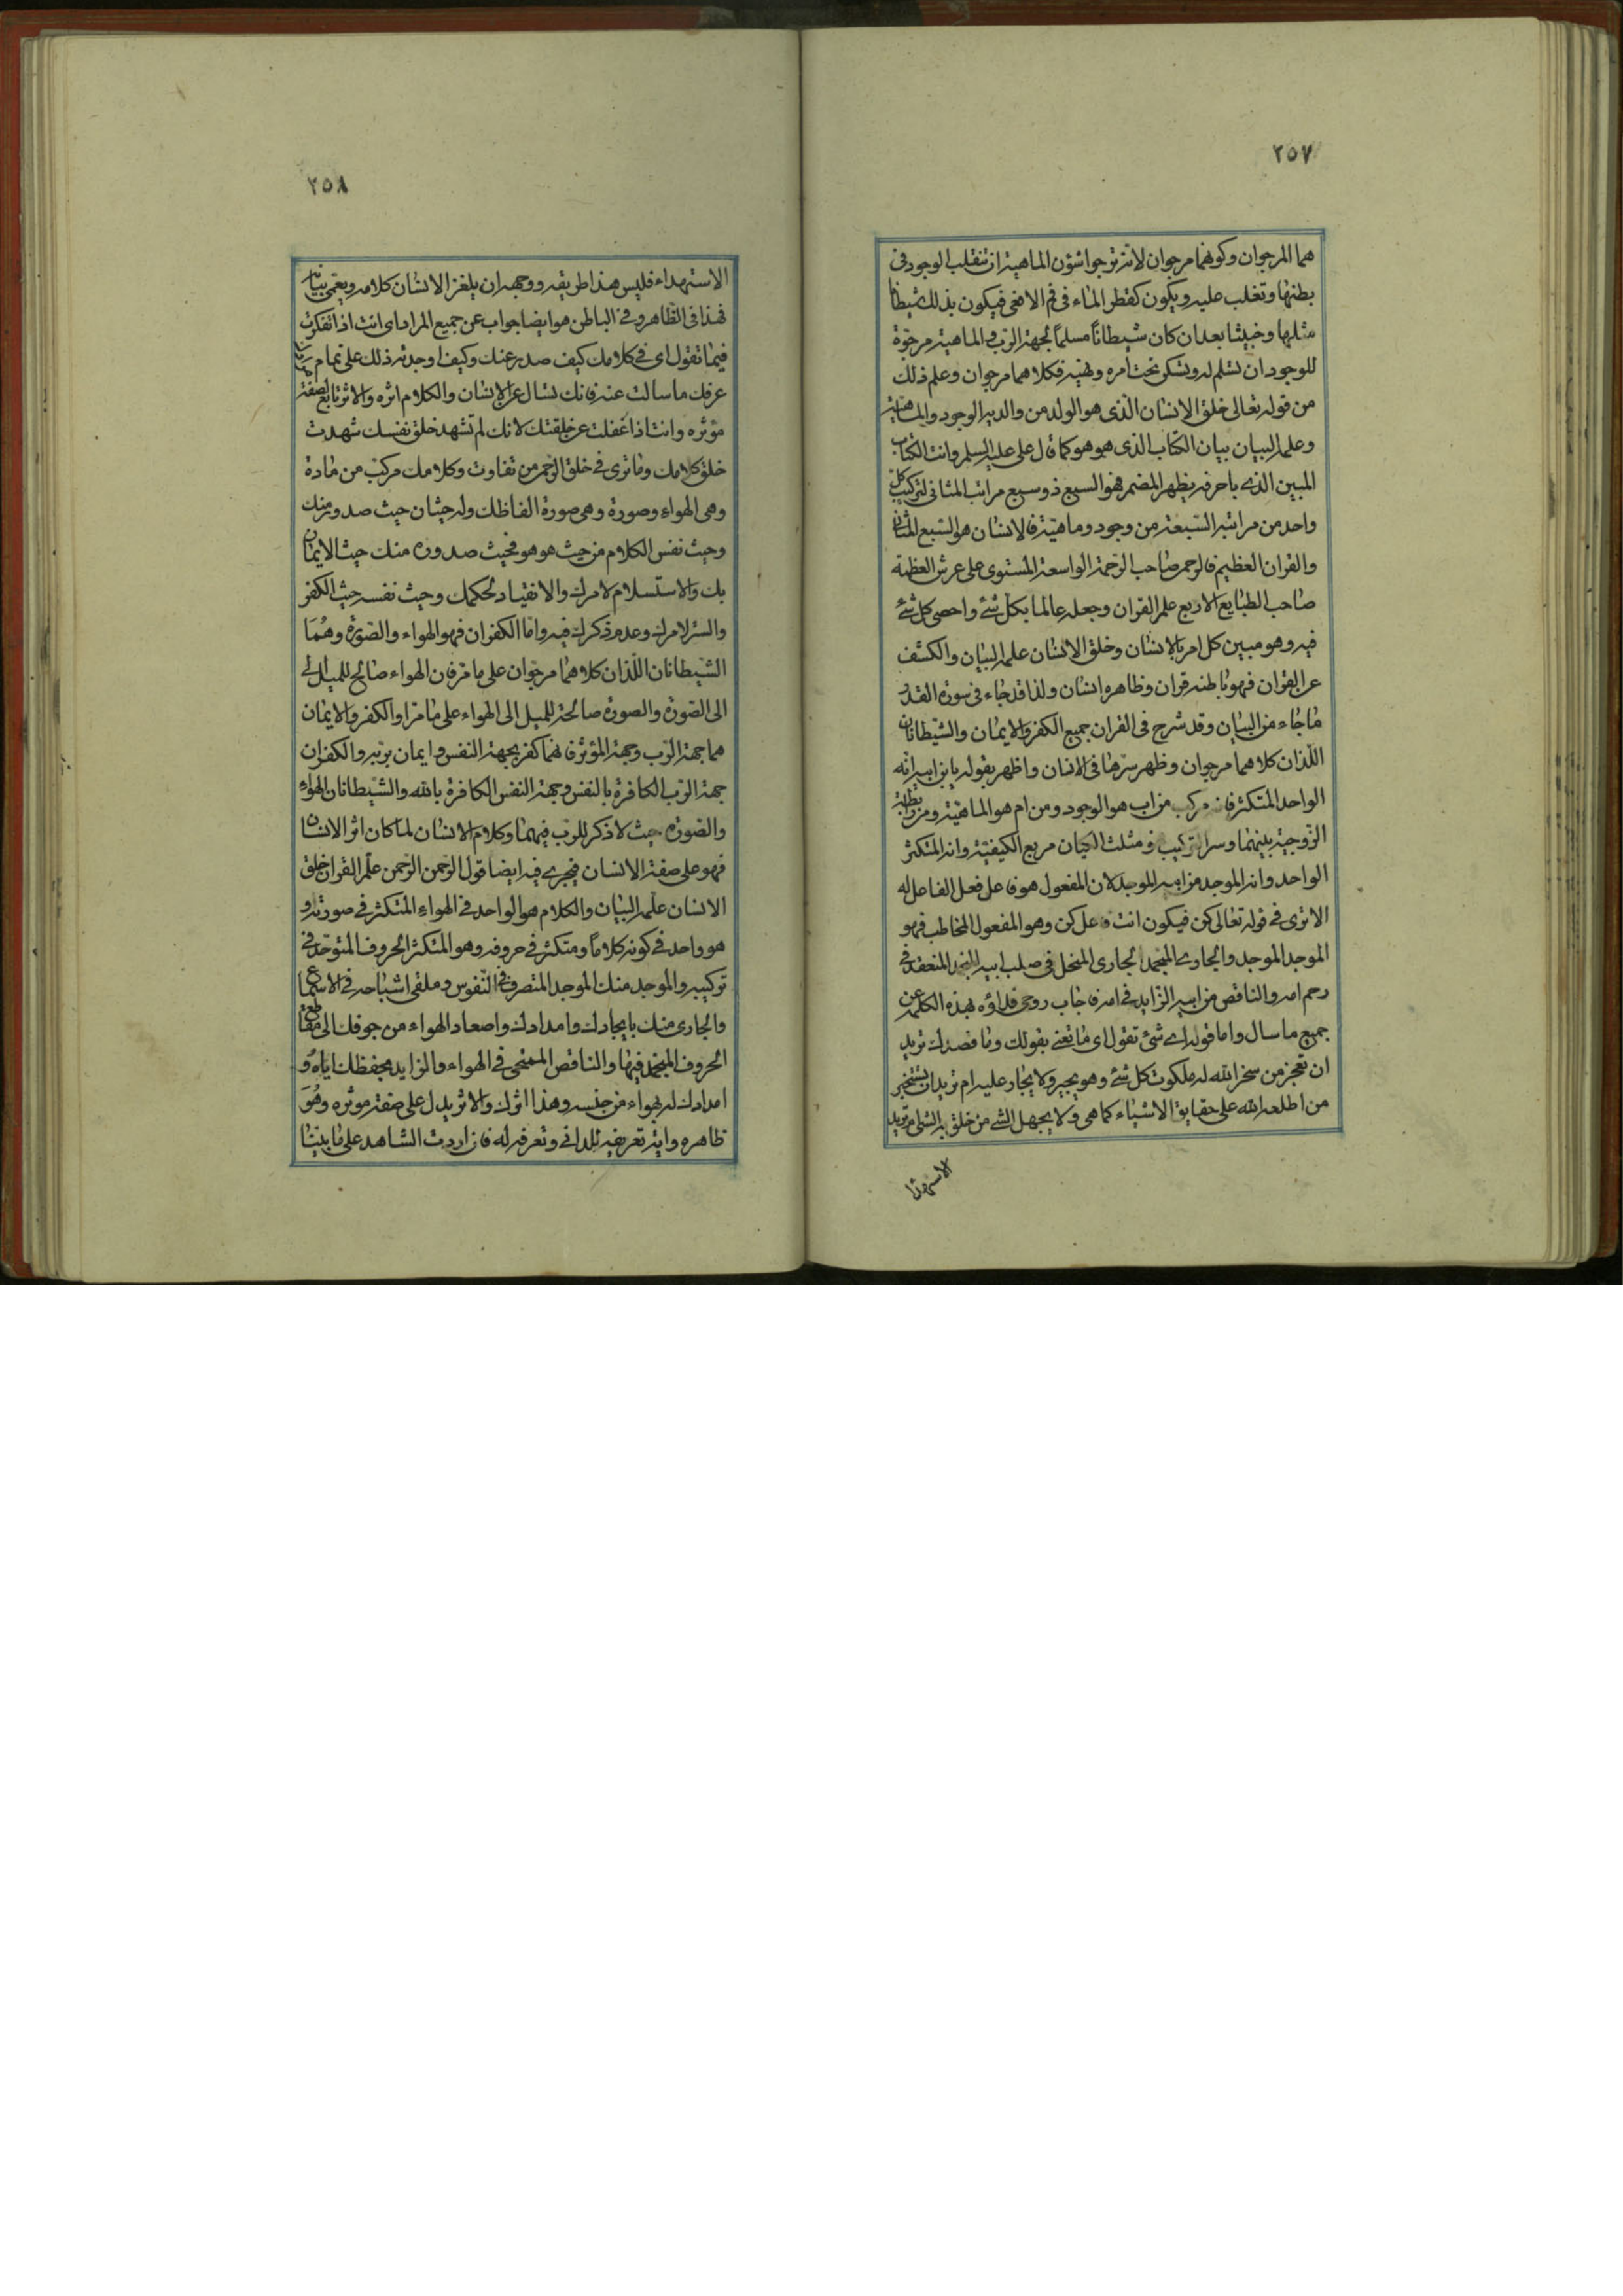 ٢٥٧
هما المرجوان وكونهما مرجوان لانه ترجوا شؤن الماهية ان تنقلب الوجود في
بطنها وتغلب عليه ويكون كقطر الماء في فم الافعى فيكون بذلك شيطانا
مثلها وخبيثا بعد ان كان شيطاناً مسلماً لجهة الرب والماهية مرجوة
للوجود ان تسلم له وتسكن تحت امره ونهيه فكلاهما مرجوان وعلم ذلك
من قوله تعالى خلق الانسان الذي هو الولد من والديه الوجود والماهية
وعلمه البيان بيان الكتاب الذي هو هو كما قال علي عليه السلم وانت الكتاب
المبين الذي باحرفه يظهر المضمر فهو السبع ذو سبع مراتب المثاني لتركيب كل
واحد من مراتبه السبعة من وجود وماهية فالانسان هو السبع المثاني
والقران العظيم فالرحمن صاحب الرحمة الواسعة المستوى على عرش العظمة
صاحب الطبايع الاربع علم القران وجعله عالما بكل شئ واحصى كل شئ
فيه وهو مبين كل امر بالانسان وخلق الانسان علمه البيان والكشف
عن القران فهو باطنه قران وظاهره انسان ولذا قد جاء في سورة القدر
ما جاء من البيان وقد شرح في القران جميع الكفر والايمان والشيطانان
اللذان كلاهما مرجوان وظهر سرها في الانسان واظهر بقوله يا بن ابيه انه
الواحد المتكثر فانه مركب من اب هو الوجود ومن ام هو الماهية ومن رابطة
الزوجية بينهما وسر التركيب فمثلث الكيان مربع الكيفية وانه المتكثر
الواحد وانه الموجد من ابيه الموجد لان المفعول هو فاعل فعل الفاعل له
الا ترى في قوله تعالى كن فيكون انت فاعل كن وهو المفعول المخاطب فهو
الموجد الموجد والجاري المنجمد الجاري المنحل في صلب ابيه المنجمد المنعقد في
رحم امه والناقص من ابيه الزايد في امه فاجاب روحي فداؤه بهذه الكلمة عن
جميع ما سال واما قوله اي شئ تقول اي ما تعني بقولك وما قصدك تريد
ان تعجز من سخر الله له ملكوت كل شئ وهو يجير ولا يجار عليه ام تريد ان تستخبر
من اطلعه الله على حقايق الاشياء كما هي ولا يجهل الشي من خلق به الشي ام تريد
الاستهدا
٢٥٨
الاستهداء فليس هذا طريقه ووجهه ان يلغز الانسان كلامه ويعمى بيانه
فهذا في الظاهر وفي الباطن هو ايضا جواب عن جميع المراد اي انت اذا تفكرت
فيما تقول اي في كلامك كيف صدر عنك وكيف اوجدته ذلك على تمام
عرفك ما سالت عنه فانك تسال عن الانسان والكلام اثره والاثر تابع لصفة
مؤثره وانت اذا غفلت عن خلقتك لانك لم تشهد خلق نفسك شهدت
خلق كلامك وما ترى في خلق الرحمن من تفاوت وكلامك مركب من مادة
وهي الهواء وصورة وهي صورة الفاظك وله حيثان حيث صدوره منك
وحيث نفس الكلام من حيث هو هو فحيث صدوره منك حيث الايمان
بك والاستسلام لامرك والانقياد لحكمك وحيث نفسه حيث الكفر
والستر لامرك وعدم ذكرك فيه واما الكفران فهو الهواء والصورة وهما
الشيطانان اللذان كلاهما مرجوان على ما مر فان الهواء صالح للميل الى
الى الصورة والصورة صالحة للميل الى الهواء على ما مر او الكفر والايمان
هما جهة الرب وجهة المؤثر فانهما كفر بجهة النفس وايمان بربه والكفران
جهة الرب الكافرة بالنفس وجهة النفس الكافرة بالله والشيطانان الهواء
والصورة حيث لا ذكر للرب فيهما وكلام الانسان لما كان اثر الانسان
فهو على صفة الانسان فيجري فيه ايضا قول الرحمن الرحمن علم القران خلق
الانسان علمه البيان والكلام هو الواحد في الهواء المتكثر في صورته و
هو واحد في كونه كلاماً ومتكثر في حروفه وهو المتكثر الحروف المتوحد في
تركيبه والموجد منك الموجد المتصرف في النفوس وملقى اشباحه في الاسماع
والجاري منك بايجادك وامدادك واصعاد الهواء من جوفك الى مقاطع
الحروف المنجمد فيها والناقص الممتحى في الهواء والزايد بحفظك اياه و
امدادك له بهواء من جنسه وهذا اثرك والاثر يدل على صفة موثره وهو
ظاهره واية تعريفه للداني وتعرفه له فان اردت الشاهد على ما بينا